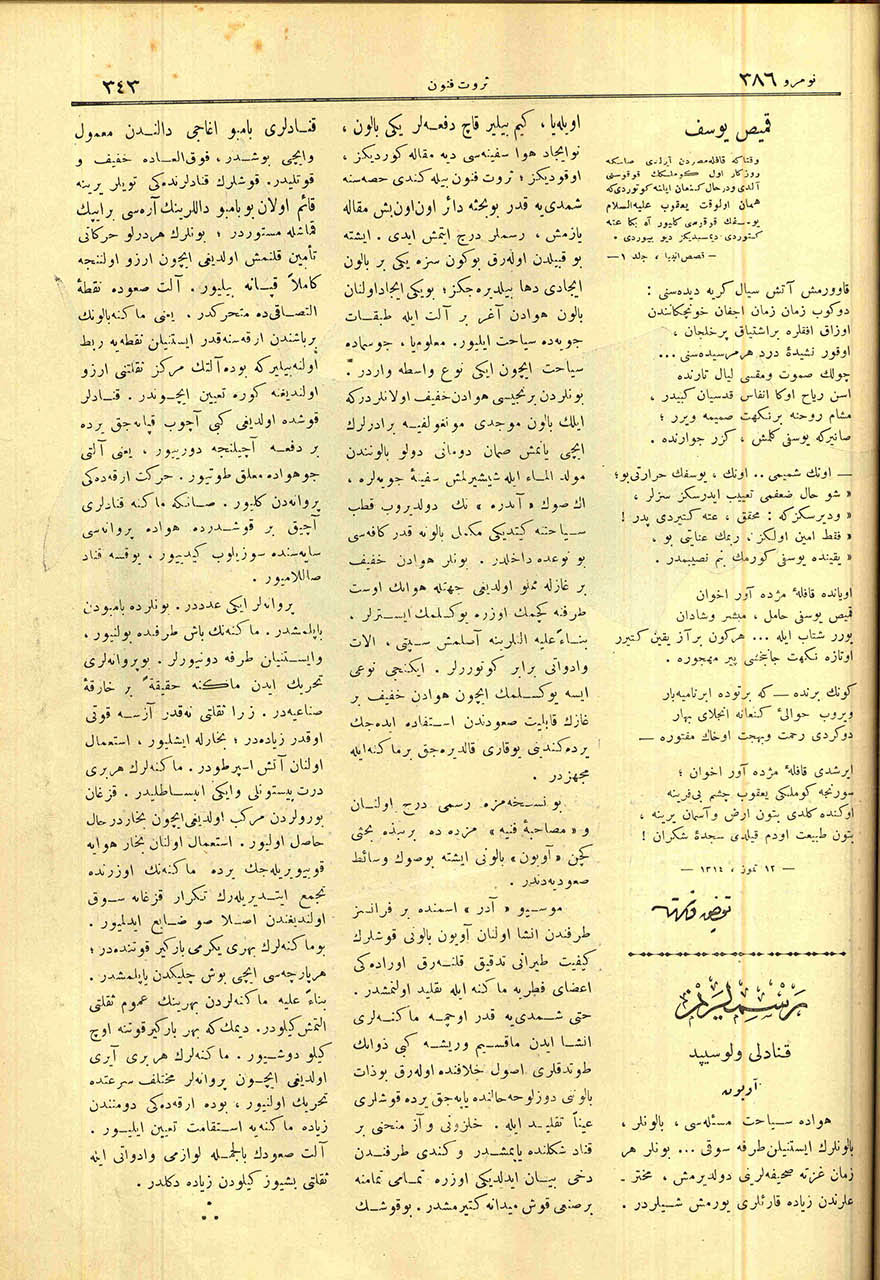 نومرو ٣٨٦
ثروت فنون
٣٤٣
قميص يوسف
وقتاكه قافله مصردن آيرلدى صاسكه
روزكار اول كوملكك قوقوسنى
آلدى ودرحال كنعان ايلنه كوتوردى كه
همان اولوقت يعقوب عليه السلام
يوسفك قوقوسى كليور آه بكا عته
كتوردى ديمسيديكز ديو بيوردى .
— قصص انبيا ، جلد ١ —
قاوورمش آتش سيال كريه ديده سنى :
دوكوب زمان زمان اجفان خونچكانندن
اوزاق افقلره براشتياق پرخلجان ،
اوقور نشيدۀ درد هرمرسيده سنى ...
چولك صموت ومقسى ليال تارنده
اسن رياح اوكا انفاس قدسيان كبيدر ،
مشام روحنه برنكهت صميمه ويرر ؛
صانيركه يوسفى كلمش ، كزر جوارنده .
— اونك شميمى .. اونك ، يوسفك حرارتى بو ؛
« شو حال ضعفمى تعييب ايدرسكز سزلر ،
« وديرسكزكه : محقق ، عته كتيردى پدر !
« فقط امين اولكز ، ربمك عنايتى بو ،
« يقينده يوسفى كورمك بنم نصيبمدر .
اويانده قافلۀ مژده آور اخوان
قميص يوسفى حامل ، مبشر وشادان
يورر شتاب ايله ... هركون برآز يقين كتيرر
اوتازه نكهت جانبخشى پير مهجوره .
كونك برنده — كه برتوده ابر ناميه بار
ويروب حوالئ كنعانه انجلاى بهار
دوكردى رحمت وبهجت اوخاك مفتوره —
ايرشدى قافلۀ مژده آور اخوان ؛
سورنجه كوملكى يعقوب چشم بى فرينه
اوكنده كلدى بتون ارض وآسمان يرينه ،
بتون طبيعت اودم قيلدى سجدۀ شكران !
— ١٢ تموز ، ١٣١٤ —
توفيق فكرت
رسملريمز
قنادلى ولوسيپد
آويون
هواده سياحت مسئله سى ، بالونلر ،
بالونلرك ايستنيلن طرفه سوقى ... بونلر هر
زمان غزته صحيفه لرينى دولديرمش ، مخترـ
علرندن زياده قارئلرى يورمش شيلردر .
اويله يا ، كيم بيلير قاچ دفعه لر يكى بالون ،
نوايجاد هوا سفينه سى ديه مقاله كورديكز ،
اوقوديكز ؛ ثروت فنون بيله كندى حصه سنه
شمدى يه قدر بوبحثه دائر اون اون بش مقاله
يازمش ، رسملر درج ايتمش ايدى . ايشته
بو قبيلدن اوله رق بوكون سزه يكى بر بالون
ايجادى دها بيلديره جكز ؛ بويكى ايجاد اولنان
بالون هوادن آغر بر آلت ايله طبقات
جويه ده سياحت ايليور . معلوم يا ، جوسماده
سياحت ايچون ايكى نوع واسطه واردر .
بونلردن برنجيسى هوادن خفيف اولانلردركه
ايلك بالون موجدى مونغولفيه برادرلرك
ايچى يانمش صمان دومانى دولو بالونندن
مولد الماء ايله شيشيرلمش سفينۀ جويه لره ،
اك صوك « آندره » نك دولديروب قطب
سياحتنه كيتديكى مكمل بالونه قدر كافه سى
بو نوعده داخلدر . بونلر هوادن خفيف
بر غازله مملو اولديغى جهتله هوانك اوست
طرفنه كچمك اوزره يوكسلمك ايسترلر .
بناءً عليه التلرينه آصلمش سپتى ، الات
وادواتى برابر كوتوررلر . ايكنجى نوعى
ايسه يوكسلمك ايچون هوادن خفيف بر
غازك قابليت صعودندن استفاده ايده جك
يرده كندينى يوقارى قالديره جق برماكنه ايله
مجهزدر .
بو نسخه مزه رسمى درج اولنان
و « مصاحبۀ فنيه » مزده ده برنبذه بحثى
كچن « آويون » بالونى ايشته بوصوك وسائط
صعوديه دندر .
موسيو « آدر » اسمنده بر فرانسز
طرفندن انشا اولنان آويون بالونى قوشلرك
كيفيت طيرانى تدقيق قلنه رق اوراده كى
اعضاى فطريه ماكنه ايله تقليد اولنمشدر .
حتى شمدى يه قدر اوجمه ماكنه لرى
انشا ايدن ماقسيم وريشه كبى ذواتك
طوتدقلرى اصول خلافنده اوله رق بوذات
بالونى دوز لوحه حالنده ياپه جق يرده قوشلرى
عيناً تقليد ايله . حلزونى وآز منحنى بر
قناد شكلنده ياپمشدر . وكندى طرفندن
دخى بيان ايدلديكى اوزره تمامى تمامنه
برصنعى قوش ميدانه كتيرمشدر . بوقوشك
قنادلرى بامبو اغاجى دالندن معمول
وايچى بوشدر ، فوق العاده خفيف و
قوتليدر . قوشلرك قنادلرنده كى تويلر يرينه
قائم اولان بو بامبو داللرينك آره سى براپيك
قماشله مستوردر ؛ بونلرك هردرلو حركاتى
تأمين قلنمش اولديغى ايچون ارزو اولننجه
كاملاً قپانه بيليور . آلت صعوده نقطۀ
التصاقى ده متحركدر . يعنى ماكنه بالونك
برباشندن ارقه سنه قدر ايستنيلن نقطه يه ربط
اولنه بيليركه بوده آلتك مركز ثقلتنى ارزو
اولنديغنه كوره تعيين ايچوندر . قنادلر
قوشده اولديغى كبى آچوب قپانه جق يرده
بر دفعه آچيلنجه دوريبور ، يعنى آلتى
جوهواده معلق طوتيور . حركت ارقه ده كى
پروانه دن كليور . صانكه ماكنه قنادلرى
آچيق بر قوشدرده هواده پروانه سى
سايه سنده سوزيلوب كيديبور ، يوقسه قناد
صاللاميور .
پروانه لر ايكى عدددر . بونلرده بامبودن
ياپلمشدر . ماكنه نك باش طرفنده بولنيور ،
وايستنيلن طرفه دونيورلر . بوپروانه لرى
تحريك ايدن ماكنه حقيقةً بر خارقۀ
صناعيه در . زرا ثقلتى نه قدر آزسه قوتى
اوقدر زياده در ؛ بخارله ايشليور ، استعمال
اولنان آتش اسپرطودر . ماكنه لرك هربرى
درت پيستونلى وايكى انبساطليدر . قزغان
بورولردن مركب اولديغى ايچون بخار درحال
حاصل اوليور . استعمال اولنان بخار هوايه
قويويريله جك يرده ماكنه نك اوزرنده
تجمع ايتديريله رك تكرار قزغانه سوق
اولنديغندن اصلا صو ضايع ايدلميور .
بوماكنه لرك بهرى يكرمى باركير قوتنده در ؛
هرپارچه سى ايچى بوش چليكدن ياپلمشدر .
بناءً عليه ماكنه لردن بهرينك عموم ثقلتى
التمش كيلودر . ديمك كه بهر باركير قوتنه اوچ
كيلو دوشيور . ماكنه لرك هربرى آيرى
اولديغى ايچون پروانه لر مختلف سرعتده
تحريك اولنيور ، بوده ارقه ده كى دومندن
زياده ماكنه يه استقامت تعيين ايليور .
آلت صعودك بالجمله لوازمى وادواتى ايله
ثقلتى بشيوز كيلودن زياده دكلدر .